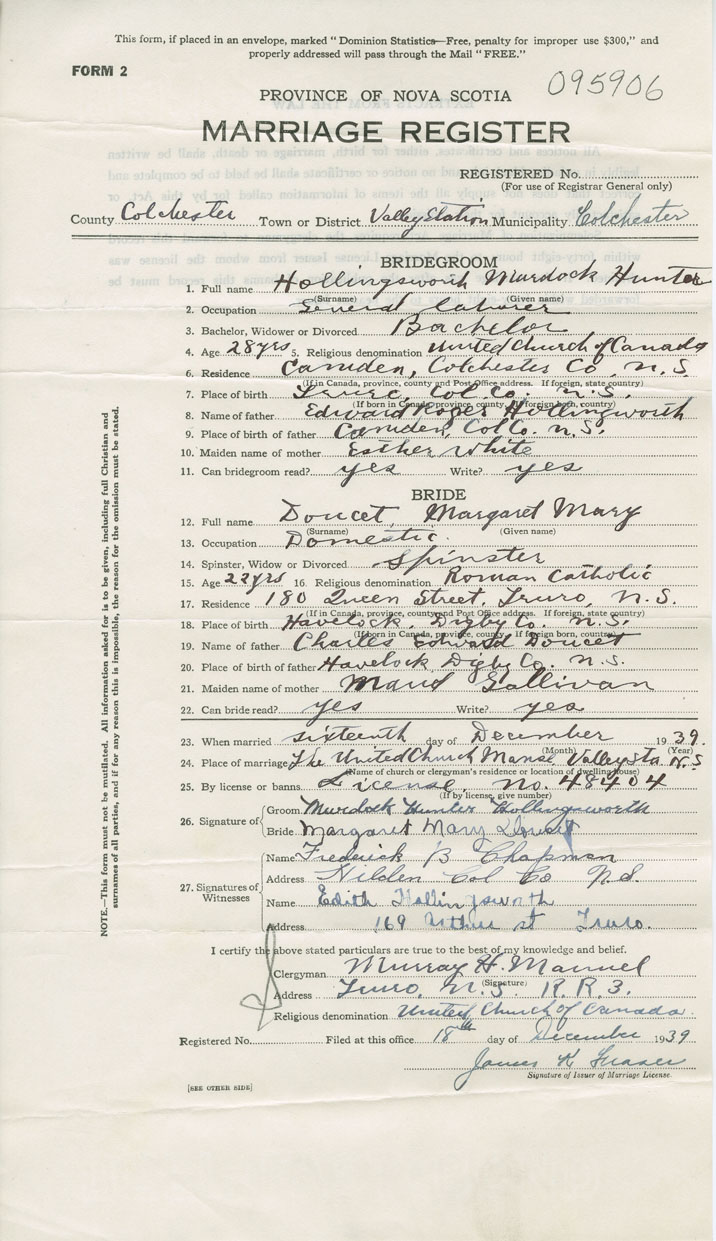 This form, if placed in an envelope, marked "Dominion Statistics—Free, penalty for improper use $300," and
properly addressed will pass through the Mail "FREE."
FORM 2
095906
PROVINCE OF NOVA SCOTIA
MARRIAGE REGISTER
REGISTERED No.
(For use of Registrar General only)
County Colchester Town or District Valley Station Municipality Colchester
BRIDEGROOM
1. Full name Hollingsworth Murdock Hunter
(Surname) (Given name)
2. Occupation General laborer
3. Bachelor, Widower or Divorced Bachelor
4. Age 28 yrs 5. Religious denomination United Church of Canada
6. Residence Camden, Colchester Co, N.S.
(If in Canada, province, county and Post Office address. If foreign, state country)
7. Place of birth Truro, Col. Co. N.S.
(If born in Canada, province, county. If foreign born, country)
8. Name of father Edward Roger Hollingworth
9. Place of birth of father Camden, Col Co. N.S.
10. Maiden name of mother Esther White
11. Can bridegroom read? yes Write? yes
BRIDE
12. Full name Doucet, Margaret Mary
(Surname) (Given name)
13. Occupation Domestic.
14. Spinster, Widow or Divorced Spinster
15. Age 22 yrs 16. Religious denomination Roman Catholic
17. Residence 180 Queen Street, Truro, N.S.
(If in Canada, province, county and Post Office address. If foreign, state country)
18. Place of birth Havelock, Digby Co. N.S.
(If born in Canada, province, county. If foreign born, country)
19. Name of father Charles Edward Doucet
20. Place of birth of father Havelock, Digby Co. N.S.
21. Maiden name of mother Maud Sallivan
22. Can bride read? yes Write? yes
23. When married sixteenth day of December 1939.
(Month) (Year)
24. Place of marriage The United Church Manse Valley Sta. N.S
(Name of church or clergyman's residence or location of dwelling house)
25. By license or banns License, No. 48404
(If by license, give number)
26. Signature of
Groom Murdock Hunter Hollingsworth
Bride Margaret Mary Doucet
27. Signatures of Witnesses
Name Frederick B Chapman
Address Hilden Col Co N.S.
Name Edith Hollingsworth
Address 169 Arthur st Truro.
I certify the above stated particulars are true to the best of my knowledge and belief.
Clergyman Murray H. Manuel
(Signature)
Address Truro, N.S. R.R.3.
Religious denomination United Church of Canada.
Registered No. Filed at this office 18th day of December 1939
James K Fraser
Signature of Issuer of Marriage License.
[SEE OTHER SIDE]
NOTE.—This form must not be mutilated. All information asked for is to be given, including full Christian and
surnames of all parties, and if for any reason this is impossible, the reason for the omission must be stated.